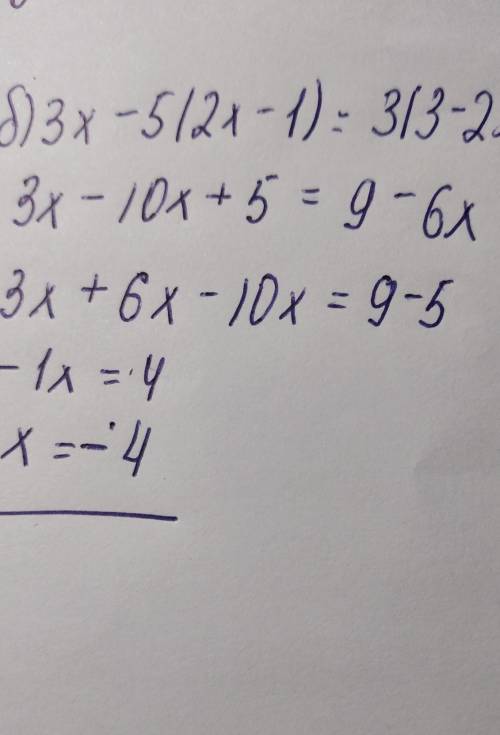 б) 3x - 5(2x - 1) = 3(3 - 2
3x - 10x + 5 = 9 - 6x
3x + 6x - 10x = 9 - 5
- 1x = 4
x = - 4